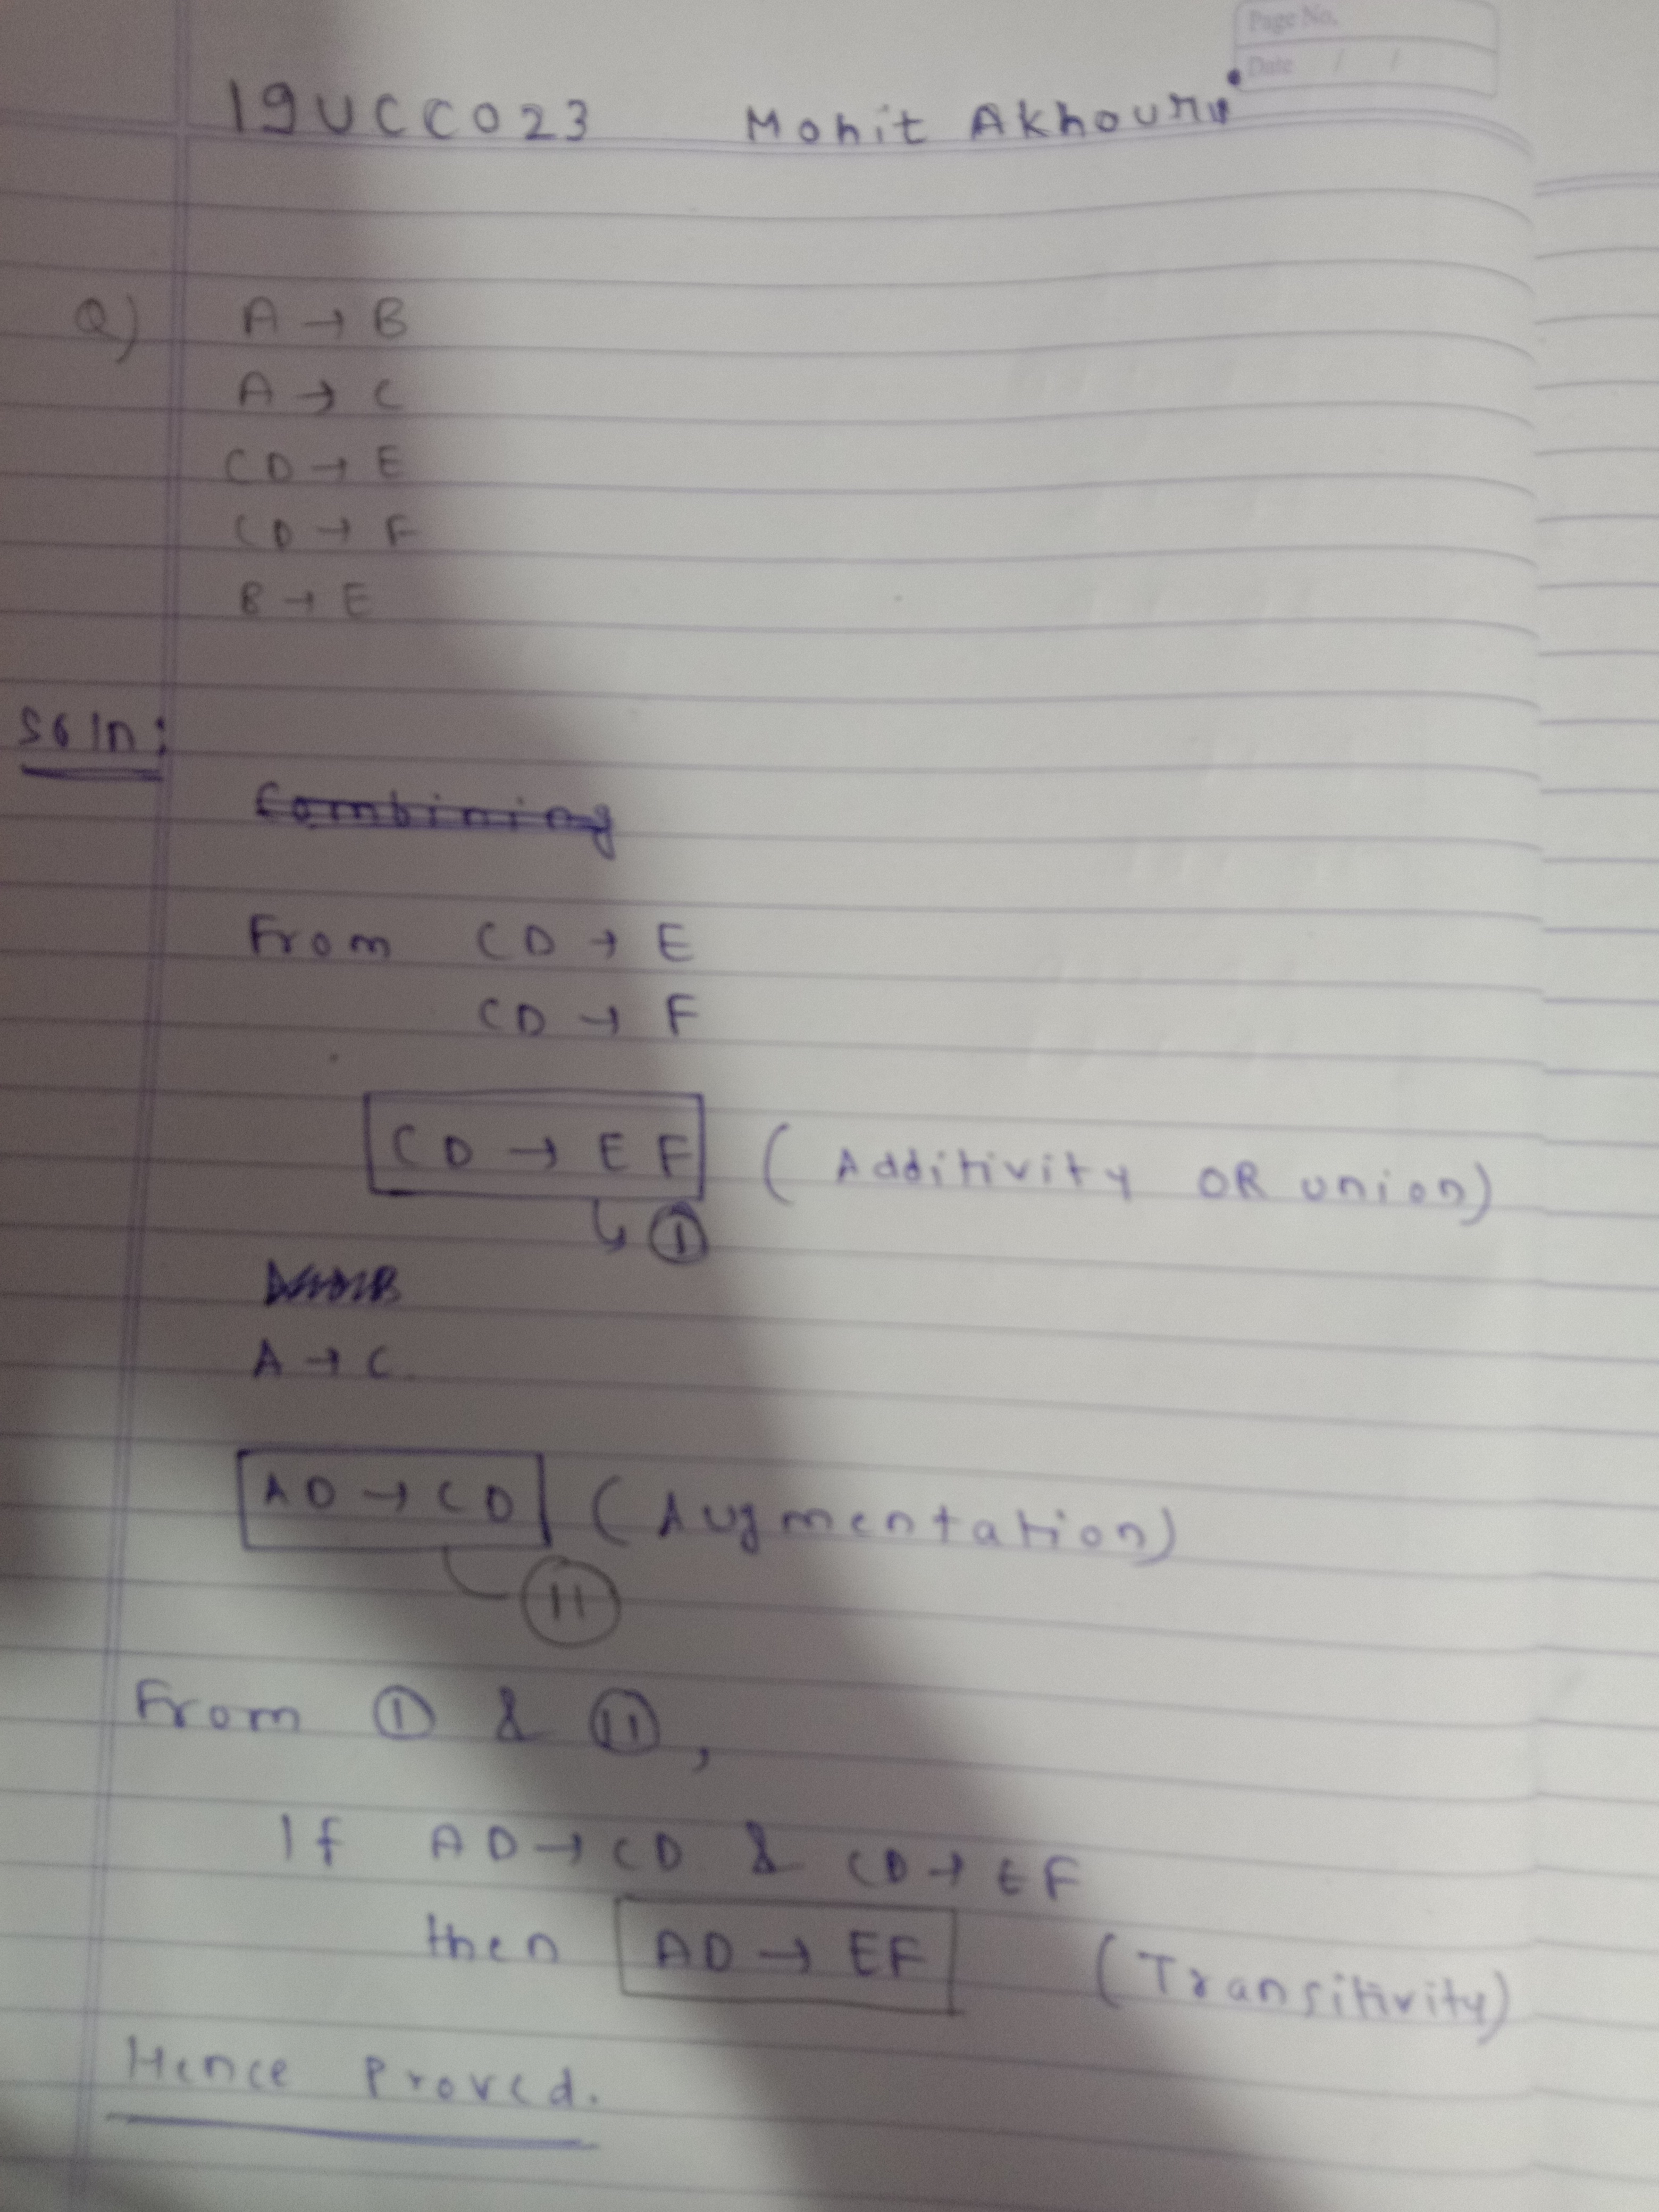 Page No.
Date / /
19UCC023 Mohit Akhoury
Q) A → B
A → C
CD → E
CD → F
B → E
Soln:
Combining
From CD → E
CD → F
CD → EF (Additivity OR union)
↳ ①
A → C
AD → CD (Augmentation)
(II)
From ① & (II),
If AD → CD & CD → EF
then AD → EF (Transitivity)
Hence Proved.